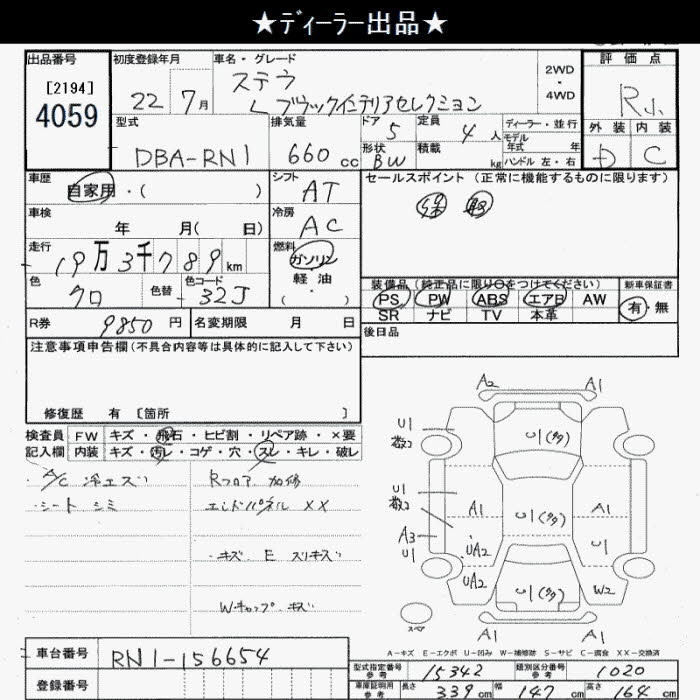 ★ディーラー出品★
出品番号
[2194]
4059
初度登録年月
22 7月
車名・グレード
ステラ
L ブラックインテリアセレクション
2WD
・
4WD
評価点
R
外装 内装
D C
型式
DBA-RN1
排気量
660 cc
ドア 5
形状 BW
定員 4 人
積載 kg
ディーラー・並行
モデル年式 年
ハンドル 左・右
車歴
自家用・( )
シフト
AT
車検
年 月( 日)
冷房
AC
走行
19万3千789km
燃料
ガソリン
軽油
( ・ )
色
クロ
色替
色コード
32J
セールスポイント(正常に機能するものに限ります)
装備品(純正品に限り○をつけてください)
新車保証書
PS PW ABS エアB AW
有・無
SR ナビ TV 本革
R券 9850円
名変期限 月 日
後日品
注意事項申告欄(不具合内容等は具体的に記入して下さい)
修復歴 有 [箇所 ]
検査員 FW キズ・飛石・ヒビ割・リペア跡・×要
記入欄 内装 キズ・汚レ・コゲ・穴・スレ・キレ・破レ
・A/C 冷エズ
・シート シミ
Rフロア 加修
エンドパネル XX
・キズ E スリキズ
Wキャップ キズ
A2 A1
U1
数コ
U1(多)
U1
数コ
A1 U1(多) A1
A3
U1
UA2 U1
UA2 U1(多) W2
スペア
A1 A1
A-キズ E-エクボ U-凹み W-補修跡 S-サビ C-腐食 XX-交換済
車台番号 RN1-156654
登録番号
型式指定番号
参考
15342
類別区分番号
参考
1020
車庫証明用
参考
長さ 339cm
幅 147cm
高さ 164cm